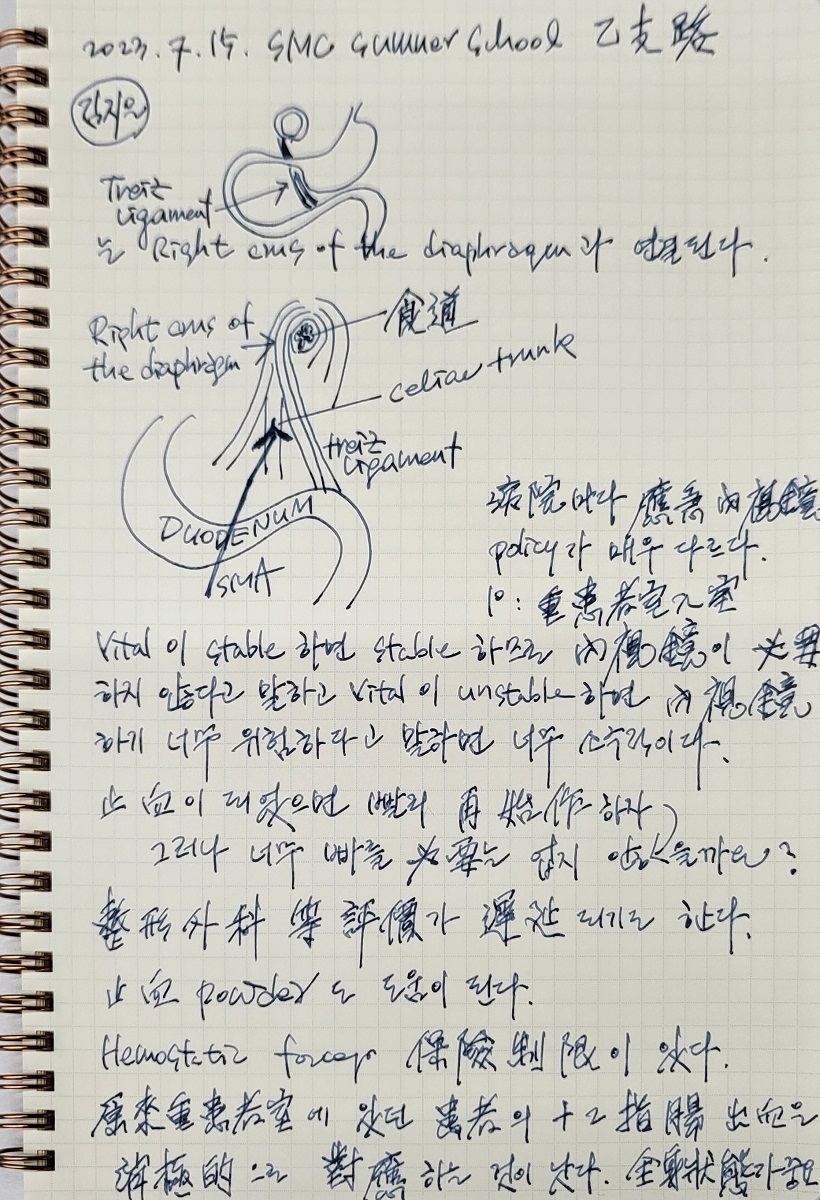 2023. 7. 15. SMC Summer School 乙支路
김지은
Treitz
ligament
는 Right crus of the diaphragm과 연결된다.
Right crus of
the diaphragm
食道
celiac trunk
treitz
ligament
DUODENUM
SMA
病院마다 應急 內視鏡
policy가 매우 다르다.
重患者室
Vital이 stable하면 stable하므로 內視鏡이 必要
하지 않다고 말하고 vital이 unstable하면 內視鏡
하기 너무 위험하다고 말하면 너무 소극적이다.
止血이 되었으면 빨리 再始作하자
그러나 너무 빠를 必要는 없지 않을까요?
整形外科 等 評價가 遲延되기도 한다.
止血 powder도 도움이 된다.
Hemostatic forcep 保險制限이 있다.
原來 重患者室에 있던 患者의 十二指腸 出血은
積極的으로 對應하는 것이 낫다. 全身狀態가 중요